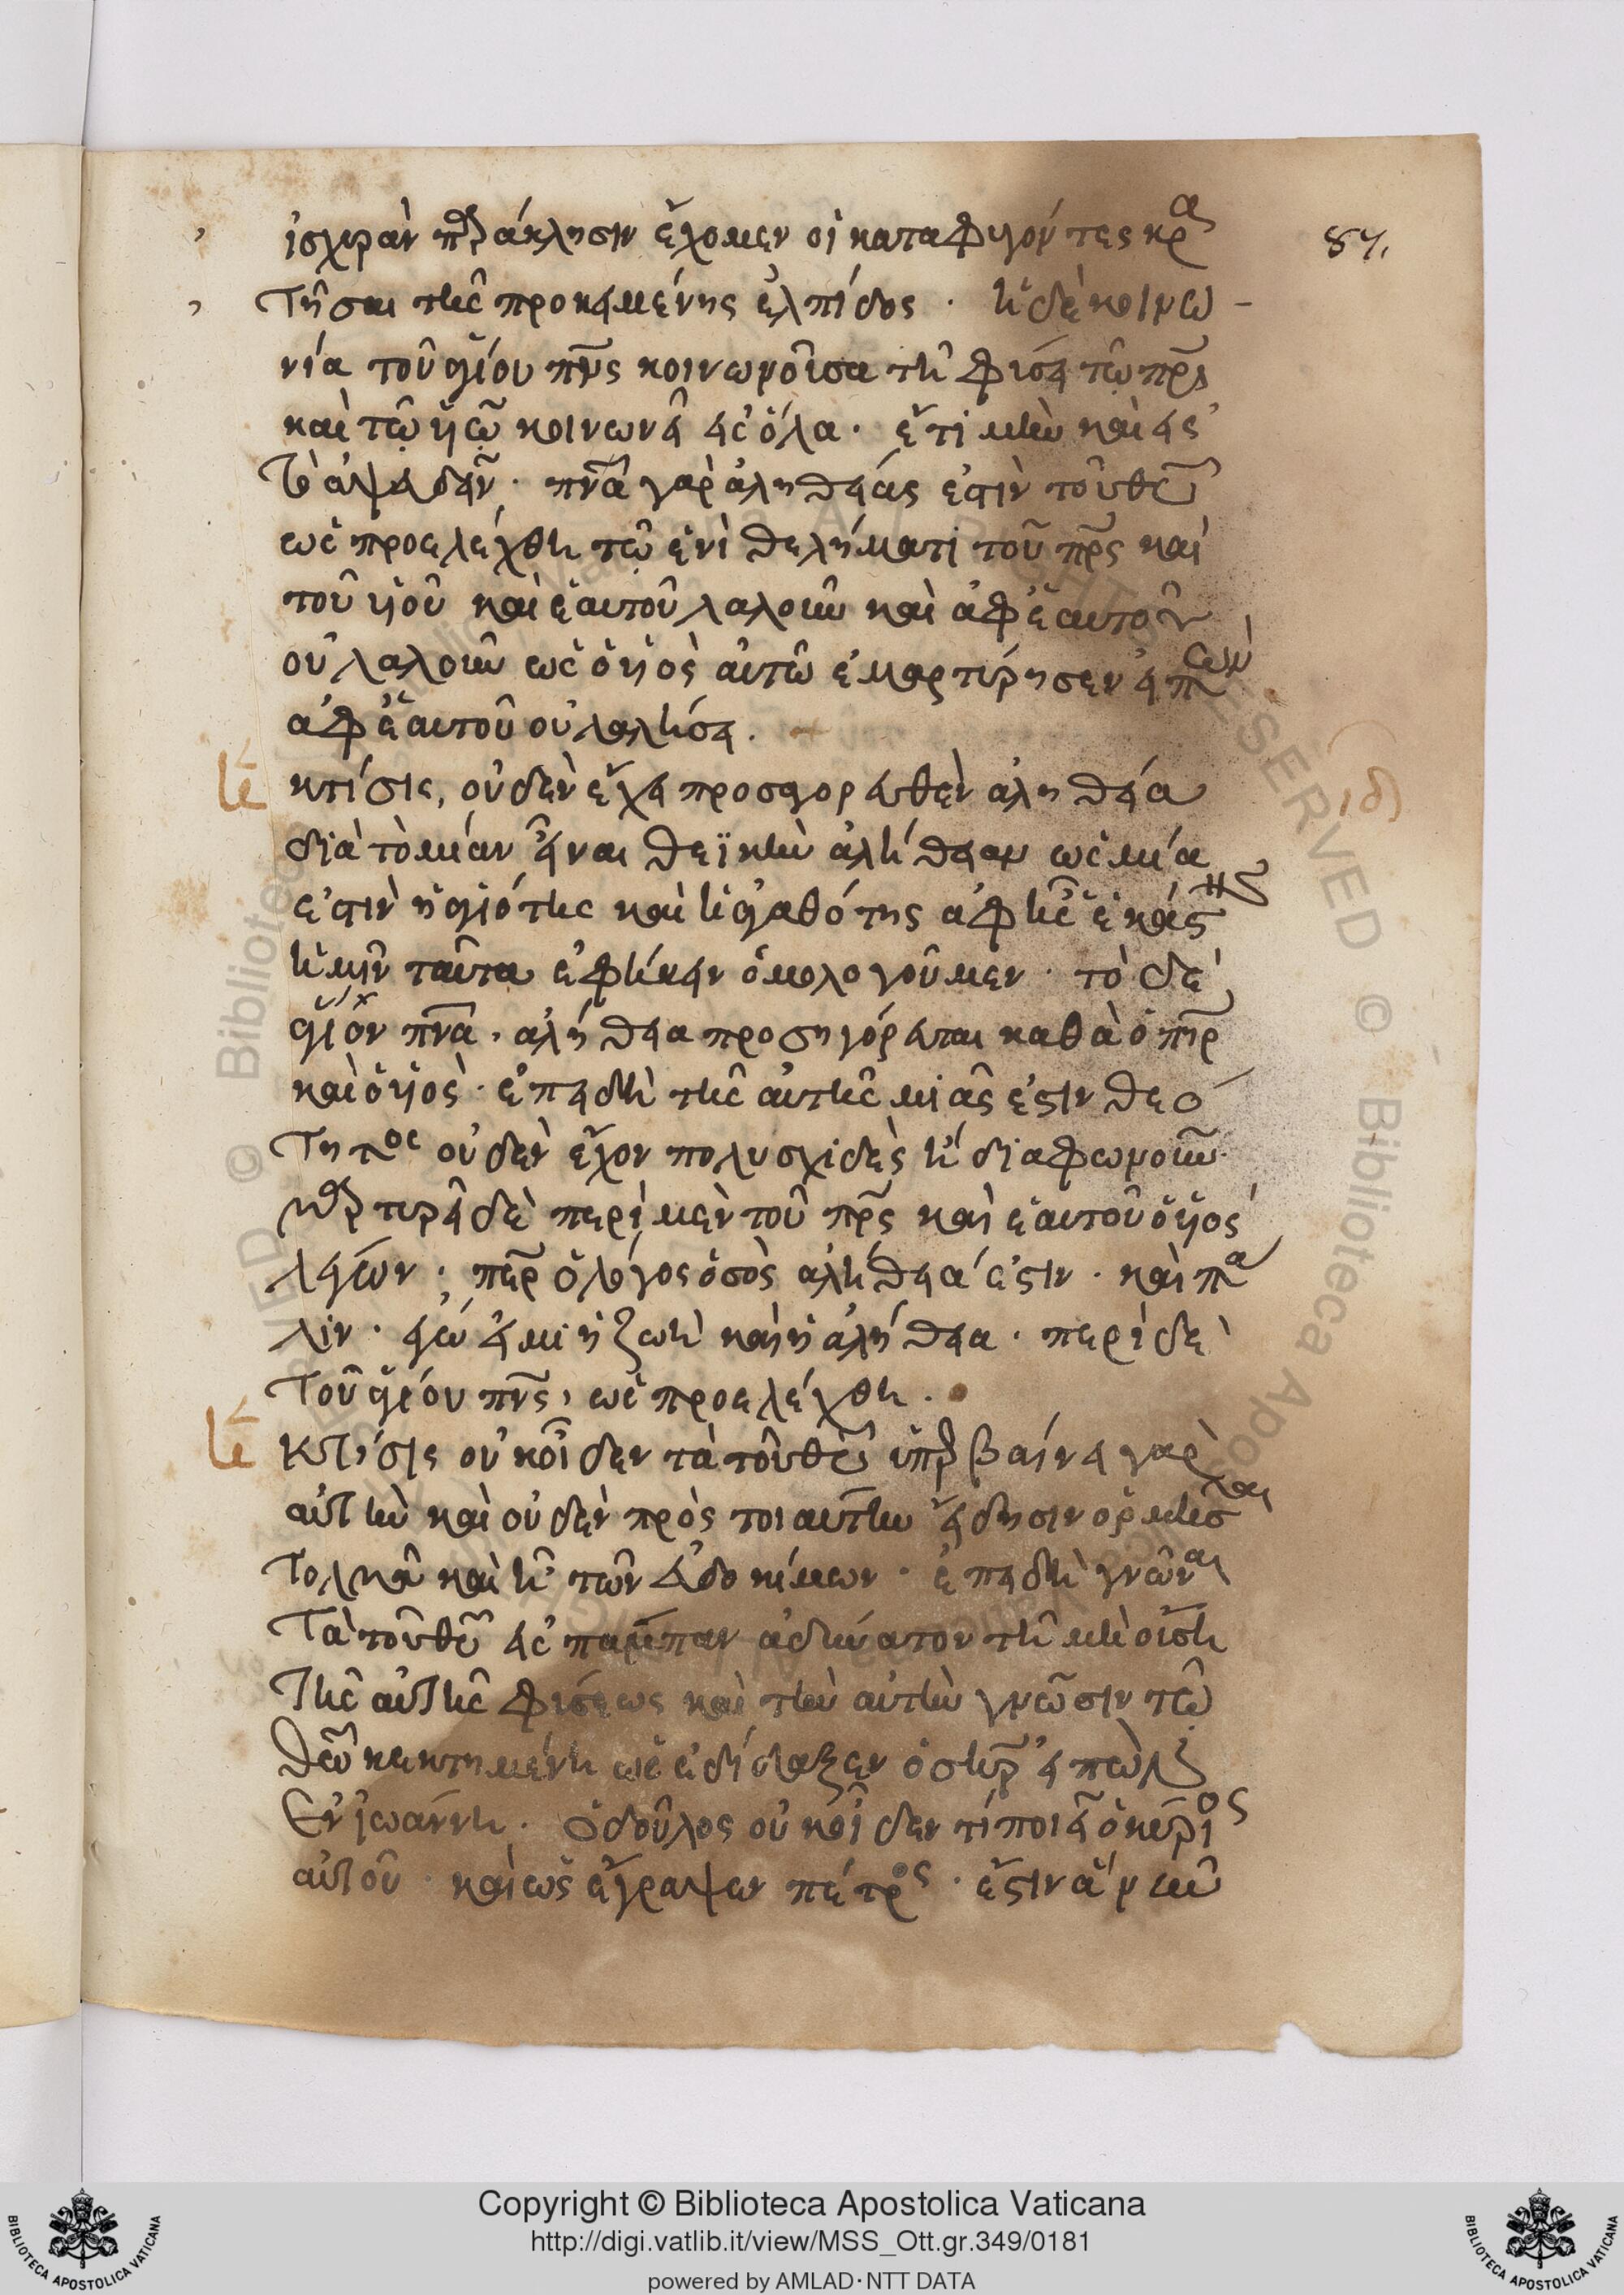 ἰσχυρὰν παράκλησιν ἔχομεν οἱ καταφυγόντες κρα
87.
τῆσαι τῆς προκειμένης ἐλπίδος · ἡ δὲ κοινω –
νία τοῦ ἁγίου πνς κοινωνοῦσα τῆ φύσει τῶ πρι
καὶ τῶ υἱῶ κοινωνεῖ εἰς ὅλα · ἔτι μὴν καὶ εἰς
τὸ ἀψευδεῖν · πνα γὰρ ἀληθείας ἐστὶν τοῦ θυ
ὡς προελέχθη τῶ ἑνὶ θελήματι τοῦ πρς καὶ
τοῦ υἱοῦ καὶ ἑαυτοῦ λαλοῦν καὶ ἀφ' ἑαυτοῦ
οὐ λαλοῦν ὡς ὁ υἱὸς αὐτῶ ἐμαρτύρησεν εἰπὼν
ἀφ' ἑαυτοῦ οὐ λαλήσει .
ιε κτίσις, οὐδὲν ἔχει προσαγορευθὲν ἀλήθεια
ιδ
διὰ τὸ μίαν εἶναι θεϊκὴν ἀλήθειαν ὡς μία
ἐστὶν ἡ ἁγιότης καὶ ἡ ἀγαθότης ἀφ' ἧς ἑκάστης
ἡμῖν ταῦτα ἐφήκειν ὁμολογοῦμεν · τὸ δὲ
ἅγιον πνα, ἀλήθεια προσηγόρευται καθὰ ὁ πηρ
καὶ ὁ υἱὸς · ἐπειδὴ τῆς αὐτῆς μιᾶς ἐστιν θεό
τητος οὐδὲν ἔχον πολυσχιδὲς ἢ διαφωνοῦν ·
μαρτυρεῖ δὲ περὶ μὲν τοῦ πρς καὶ ἑαυτοῦ ὁ υἱός
λέγων · περ ὁ λόγος ὁ σὸς ἀλήθειά ἐστιν · καὶ πα
λιν · ἐγώ εἰμι ἡ ζωὴ καὶ ἡ ἀλήθεια · περὶ δὲ
τοῦ ἁγίου πνς, ὡς προελέχθη .
ιε κτίσις οὐκ οἶδεν τὰ τοῦ θυ ὑπερβαίνει γὰρ
αὐτὴν καὶ οὐδὲν πρὸς τοιαύτην εἴδησιν ὁρμῆσαι
τολμᾶ καὶ ἢ τῶν εὐδοκίμων · ἐπειδὴ γνῶναι
τὰ τοῦ θυ εἰς παμπαν ἀδύνατον τῆ μὴ οὔση
τῆς αὐτῆς φύσεως καὶ τὴν αὐτὴν γνῶσιν τῶ
θεῶ κεκτημένη ὡς ἐδίδαξεν ὁ σηρ εἰπὼν
ἐν ἰωάννη · ὁ δοῦλος οὐκ οἶδεν τί ποιεῖ ὁ κύριος
αὐτοῦ · καὶ ὡς ἔγραψεν πέτρος ·
Copyright © Biblioteca Apostolica Vaticana
http://digi.vatlib.it/view/MSS_Ott.gr.349/0181
powered by AMLAD·NTT DATA
BIBLIOTECA APOSTOLICA VATICANA
BIBLIOTECA APOSTOLICA VATICANA